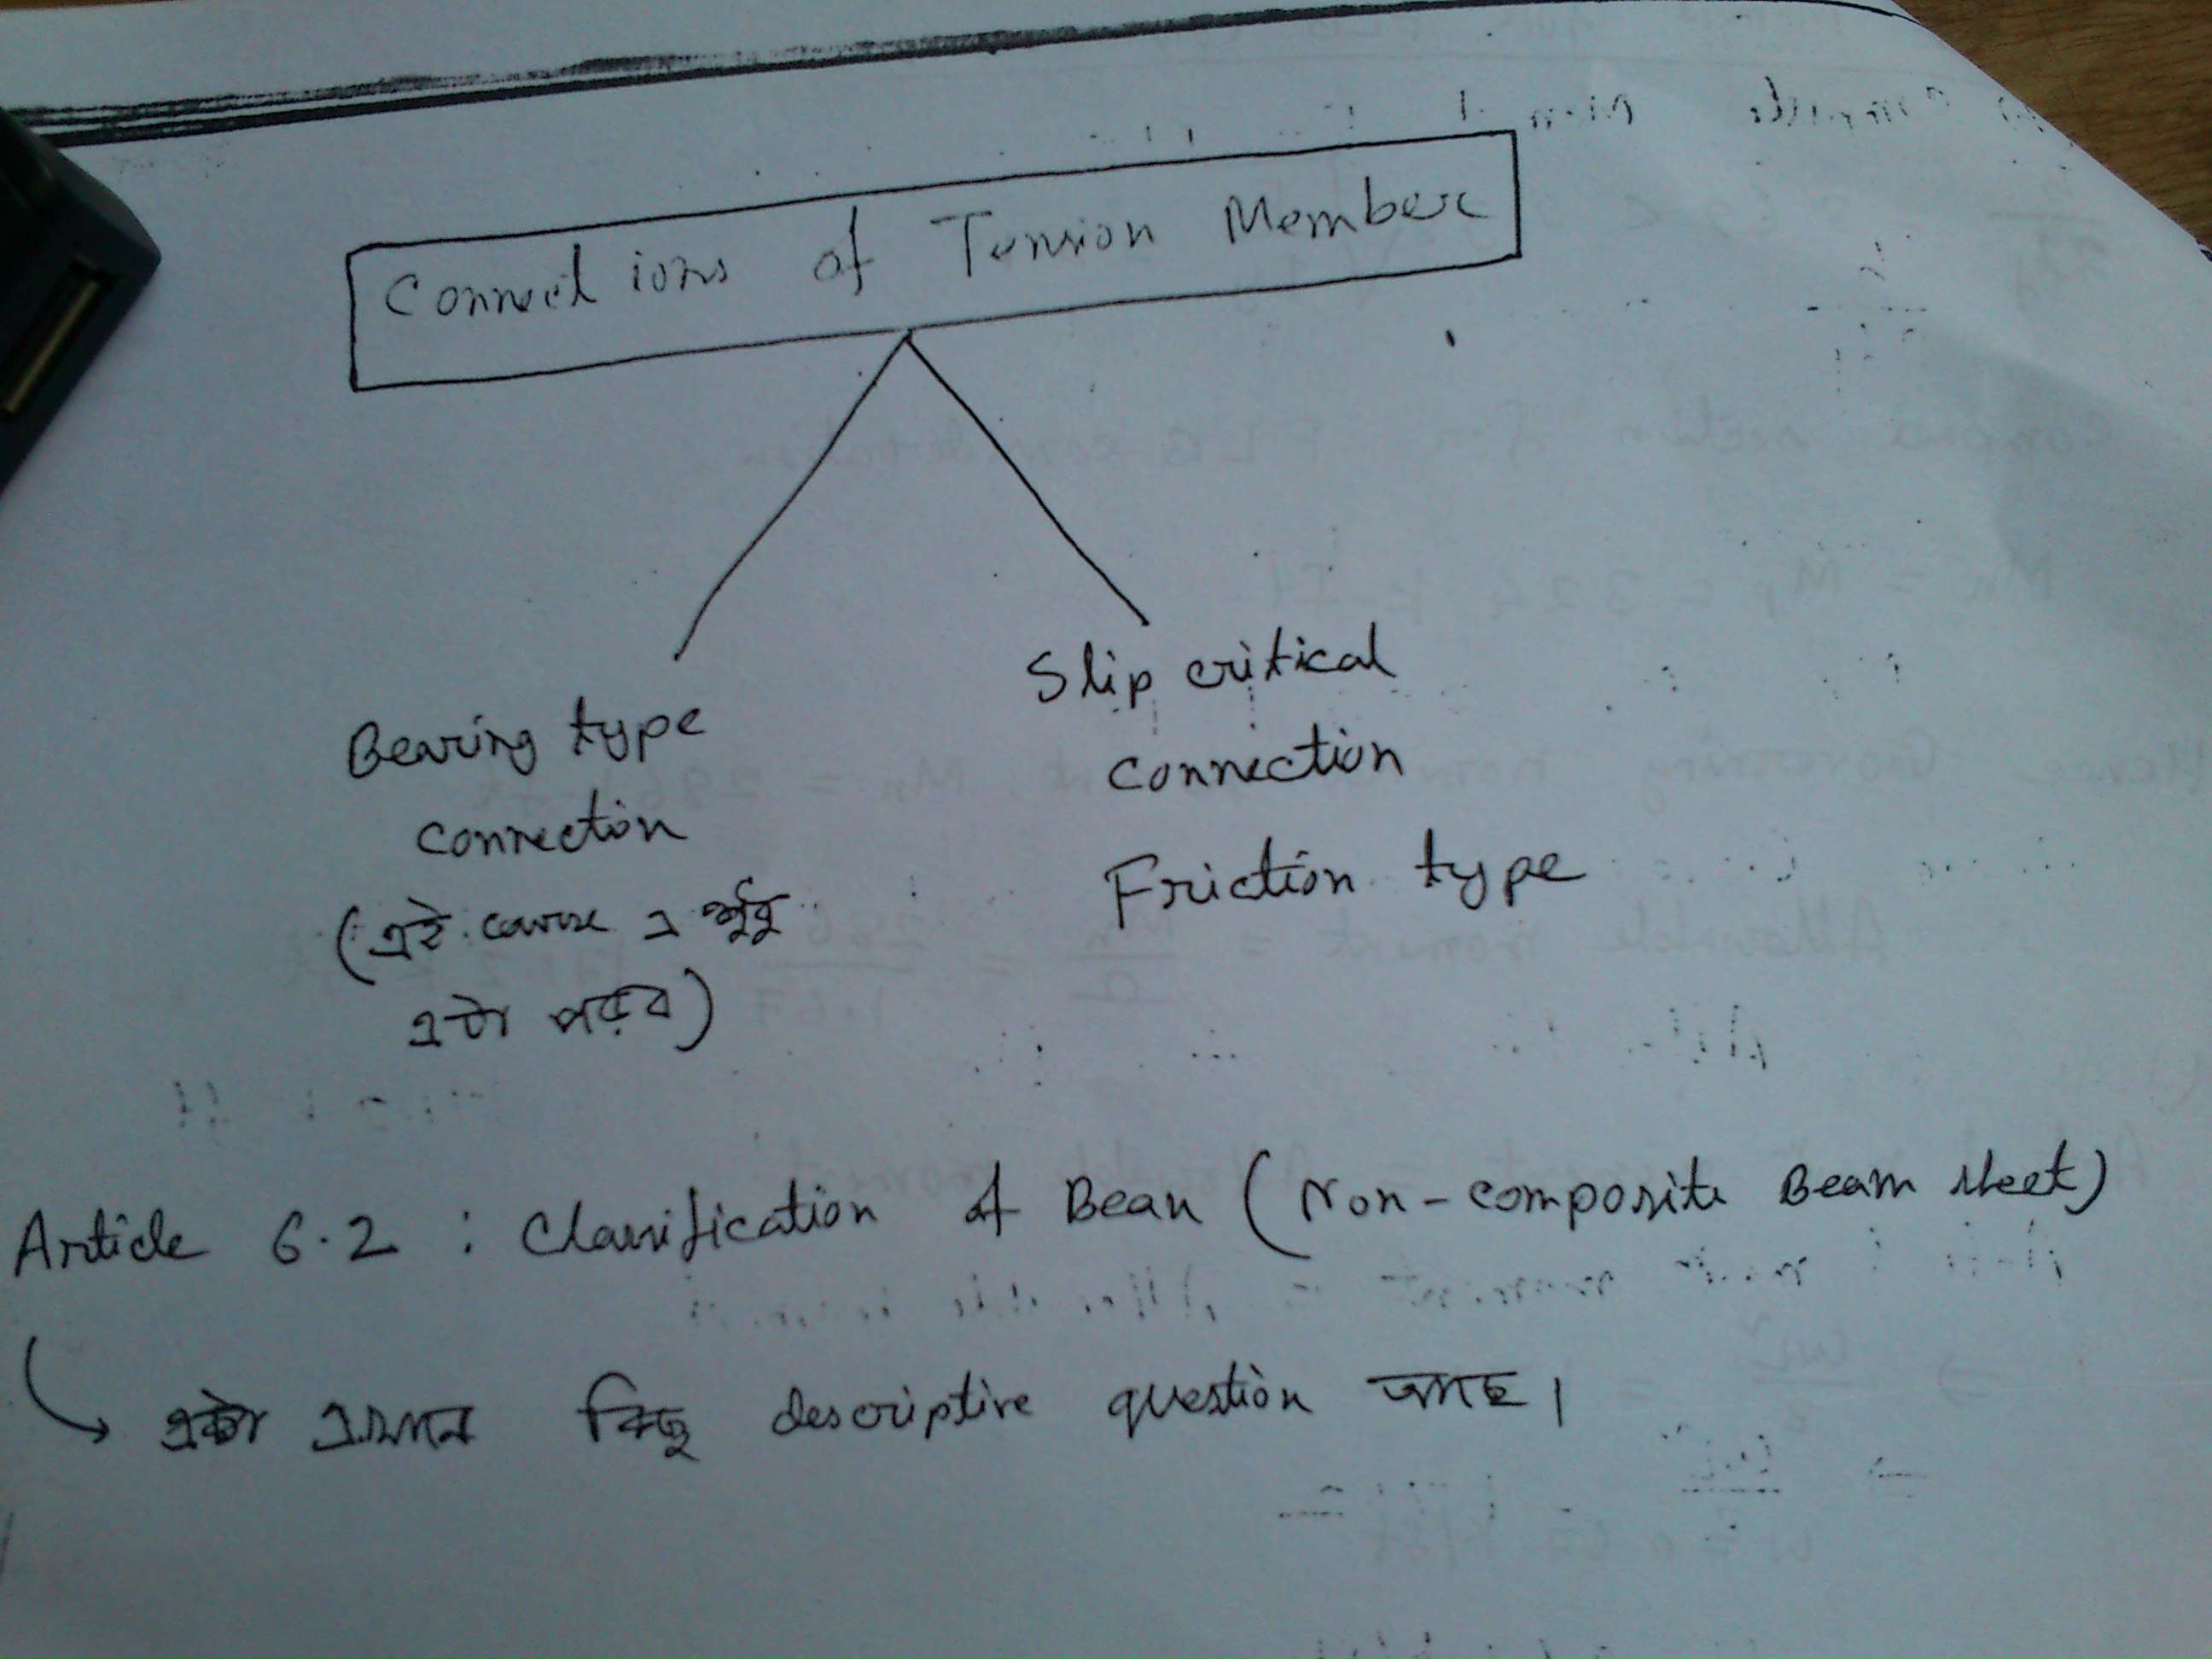 Connections of Tension Member
Bearing type
connection
(এই course এ শুধু
এটা পড়ব)
Slip critical
connection
Friction type
Article 6.2 : Classification of Beam (Non-composite Beam sheet)
এটা এখানে কিছু descriptive question আছে।